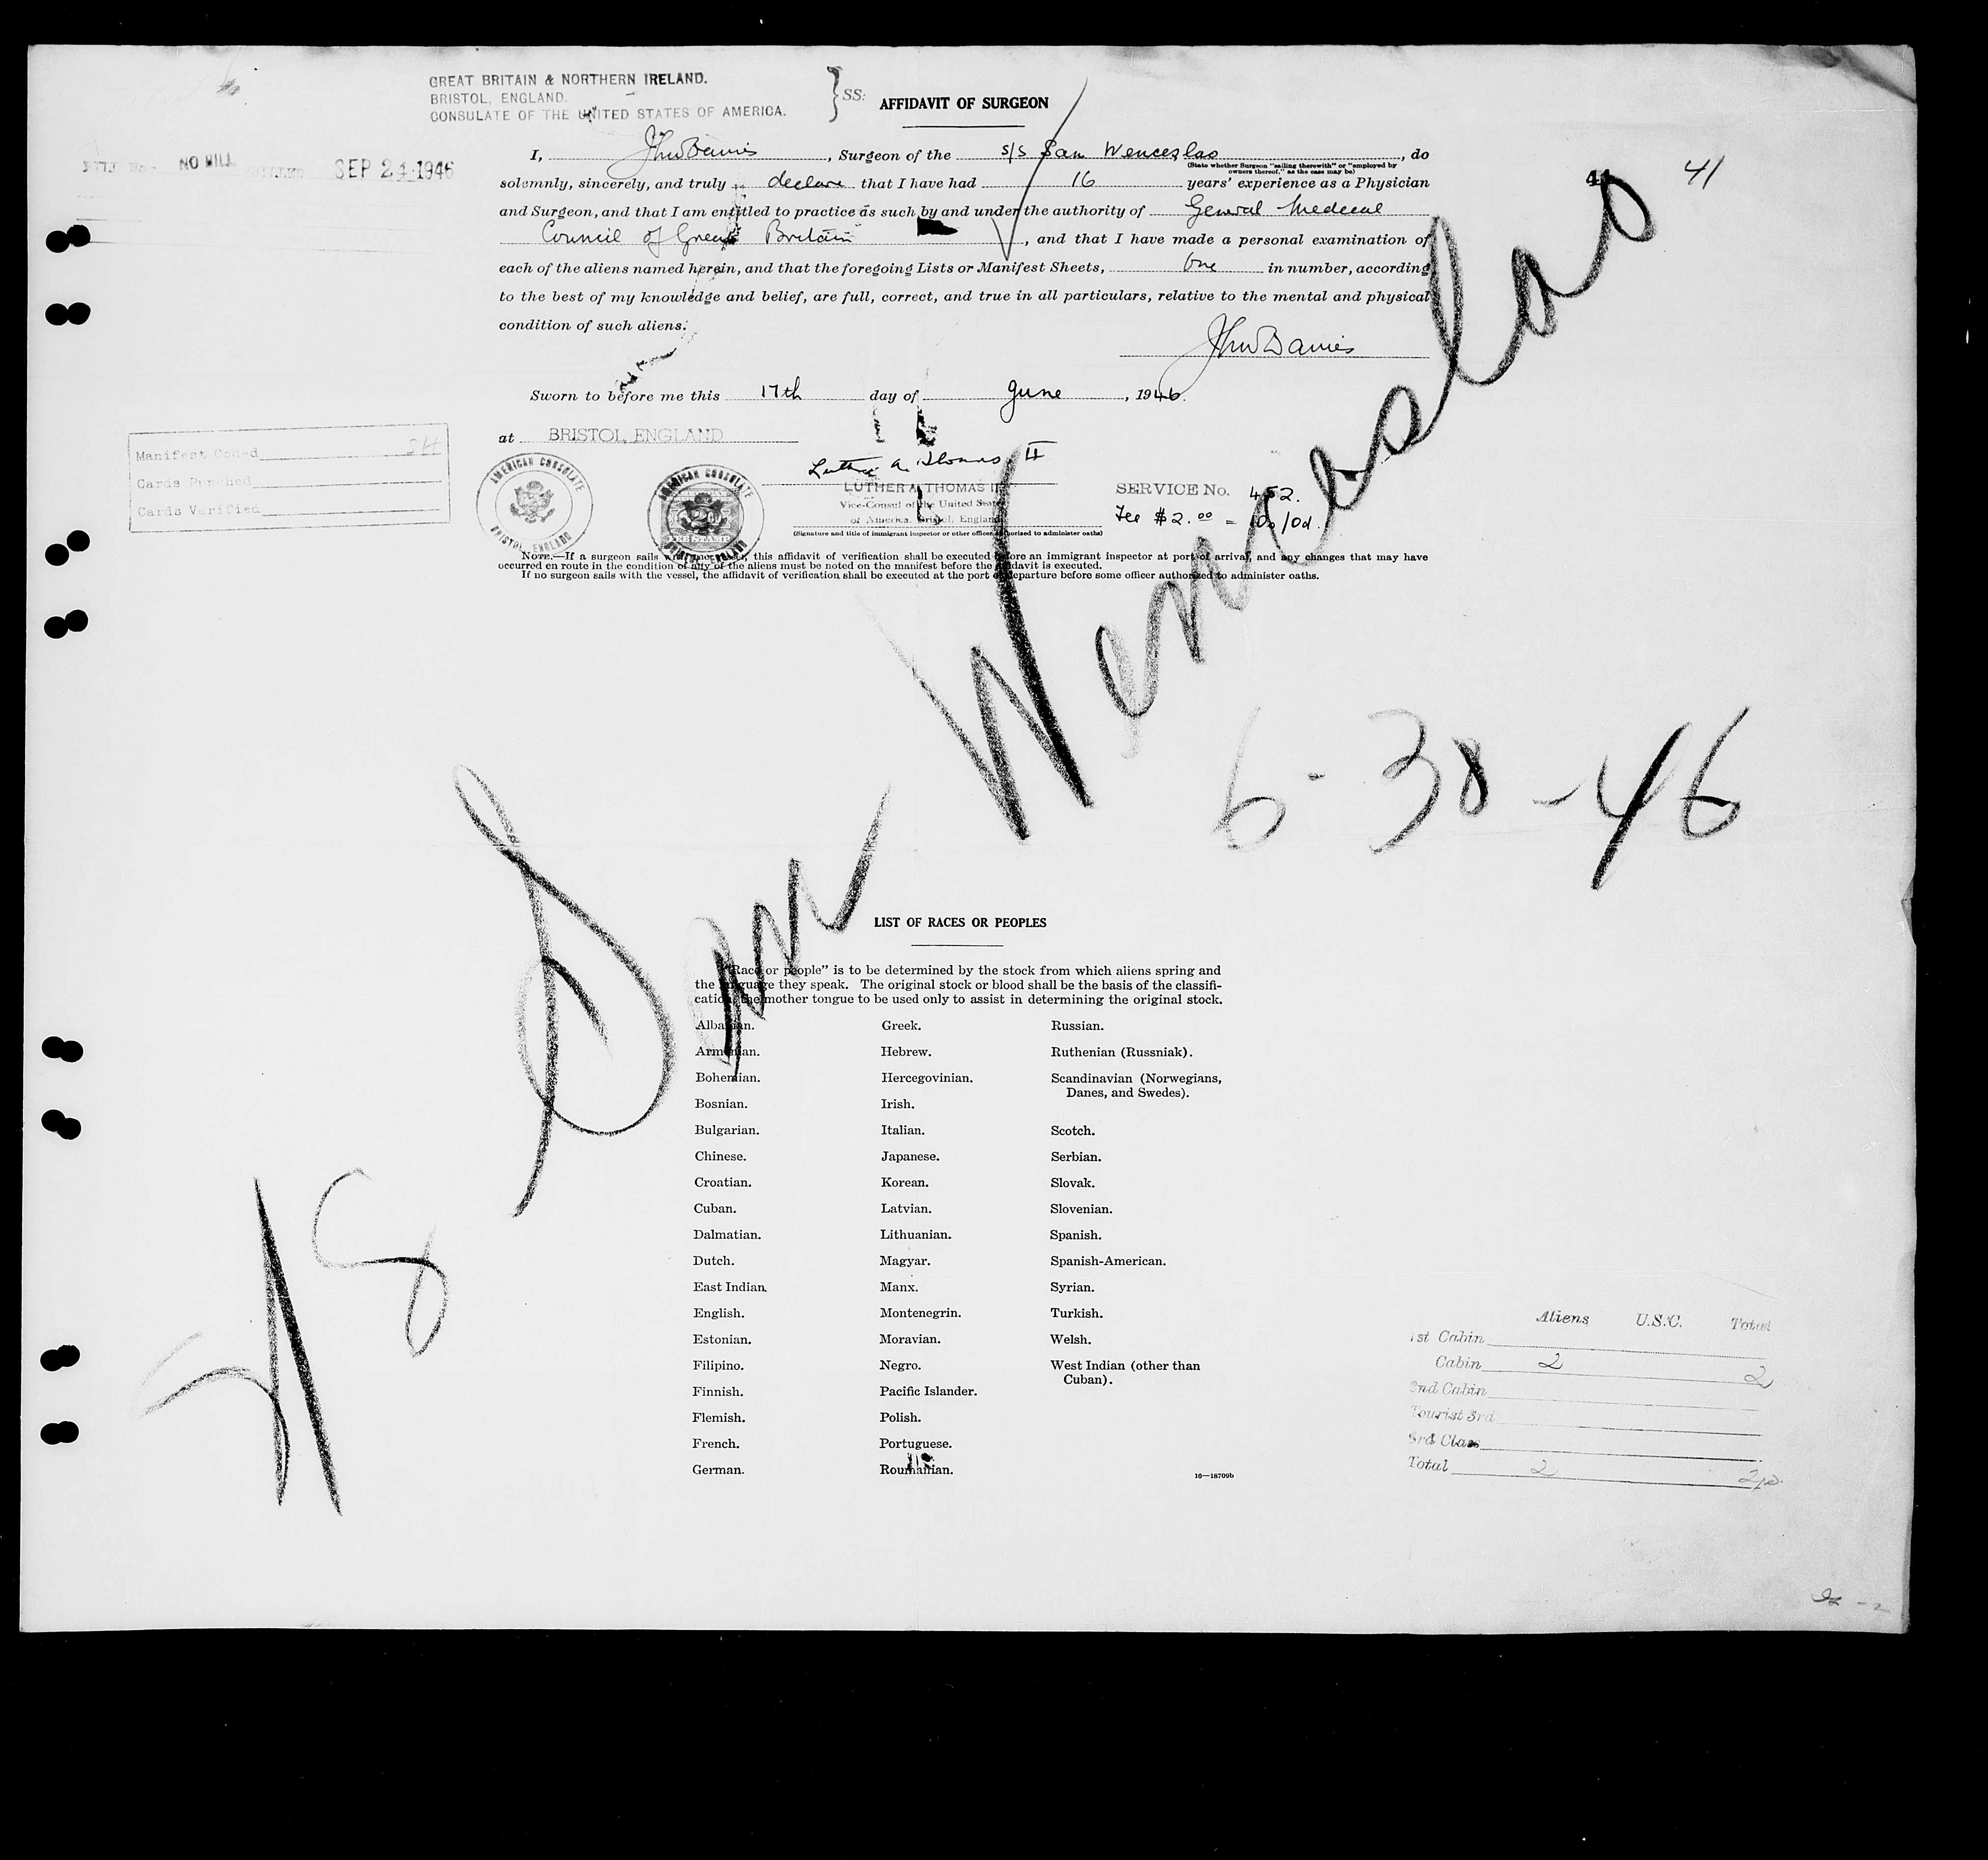 GREAT BRITAIN & NORTHERN IRELAND.
BRISTOL, ENGLAND.
CONSULATE OF THE UNITED STATES OF AMERICA.
SS:
AFFIDAVIT OF SURGEON
NO BILL
SEP 24 1946
41
41
I, Jhw Davies, Surgeon of the s/s San Wenceslao, do
(State whether Surgeon "sailing therewith" or "employed by
owners thereof," as the case may be)
solemnly, sincerely, and truly declare that I have had 16 years' experience as a Physician
and Surgeon, and that I am entitled to practice as such by and under the authority of General Medical
Council of Great Britain, and that I have made a personal examination of
each of the aliens named herein, and that the foregoing Lists or Manifest Sheets, One in number, according
to the best of my knowledge and belief, are full, correct, and true in all particulars, relative to the mental and physical
condition of such aliens.
Jhw Davies
Sworn to before me this 17th day of June, 1946.
at BRISTOL, ENGLAND
Manifest Coded
Cards Punched
Cards Verified
AMERICAN CONSULATE
BRISTOL, ENGLAND
AMERICAN CONSULATE
FEE STAMP
BRISTOL, ENGLAND
Luther A. Thomas, II
LUTHER A. THOMAS II
Vice-Consul of the United States
of America, Bristol, England
(Signature and title of immigrant inspector or other officer authorized to administer oaths)
SERVICE No. 452.
Fee $2.00 = 10s/0d.
NOTE.—If a surgeon sails this affidavit of verification shall be executed before an immigrant inspector at port of arrival, and any changes that may have
occurred en route in the condition of any of the aliens must be noted on the manifest before the affidavit is executed.
If no surgeon sails with the vessel, the affidavit of verification shall be executed at the port of departure before some officer authorized to administer oaths.
San Wenceslao
6-30-46
LIST OF RACES OR PEOPLES
"Race or people" is to be determined by the stock from which aliens spring and
the language they speak. The original stock or blood shall be the basis of the classifi-
cation, the mother tongue to be used only to assist in determining the original stock.
Albanian.
Armenian.
Bohemian.
Bosnian.
Bulgarian.
Chinese.
Croatian.
Cuban.
Dalmatian.
Dutch.
East Indian.
English.
Estonian.
Filipino.
Finnish.
Flemish.
French.
German.
Greek.
Hebrew.
Hercegovinian.
Irish.
Italian.
Japanese.
Korean.
Latvian.
Lithuanian.
Magyar.
Manx.
Montenegrin.
Moravian.
Negro.
Pacific Islander.
Polish.
Portuguese.
Roumanian.
Russian.
Ruthenian (Russniak).
Scandinavian (Norwegians,
Danes, and Swedes).
Scotch.
Serbian.
Slovak.
Slovenian.
Spanish.
Spanish-American.
Syrian.
Turkish.
Welsh.
West Indian (other than
Cuban).
16—18709b
Aliens U.S.C. Total
1st Cabin
Cabin 2 2
2nd Cabin
Tourist 3rd
3rd Class
Total 2 2